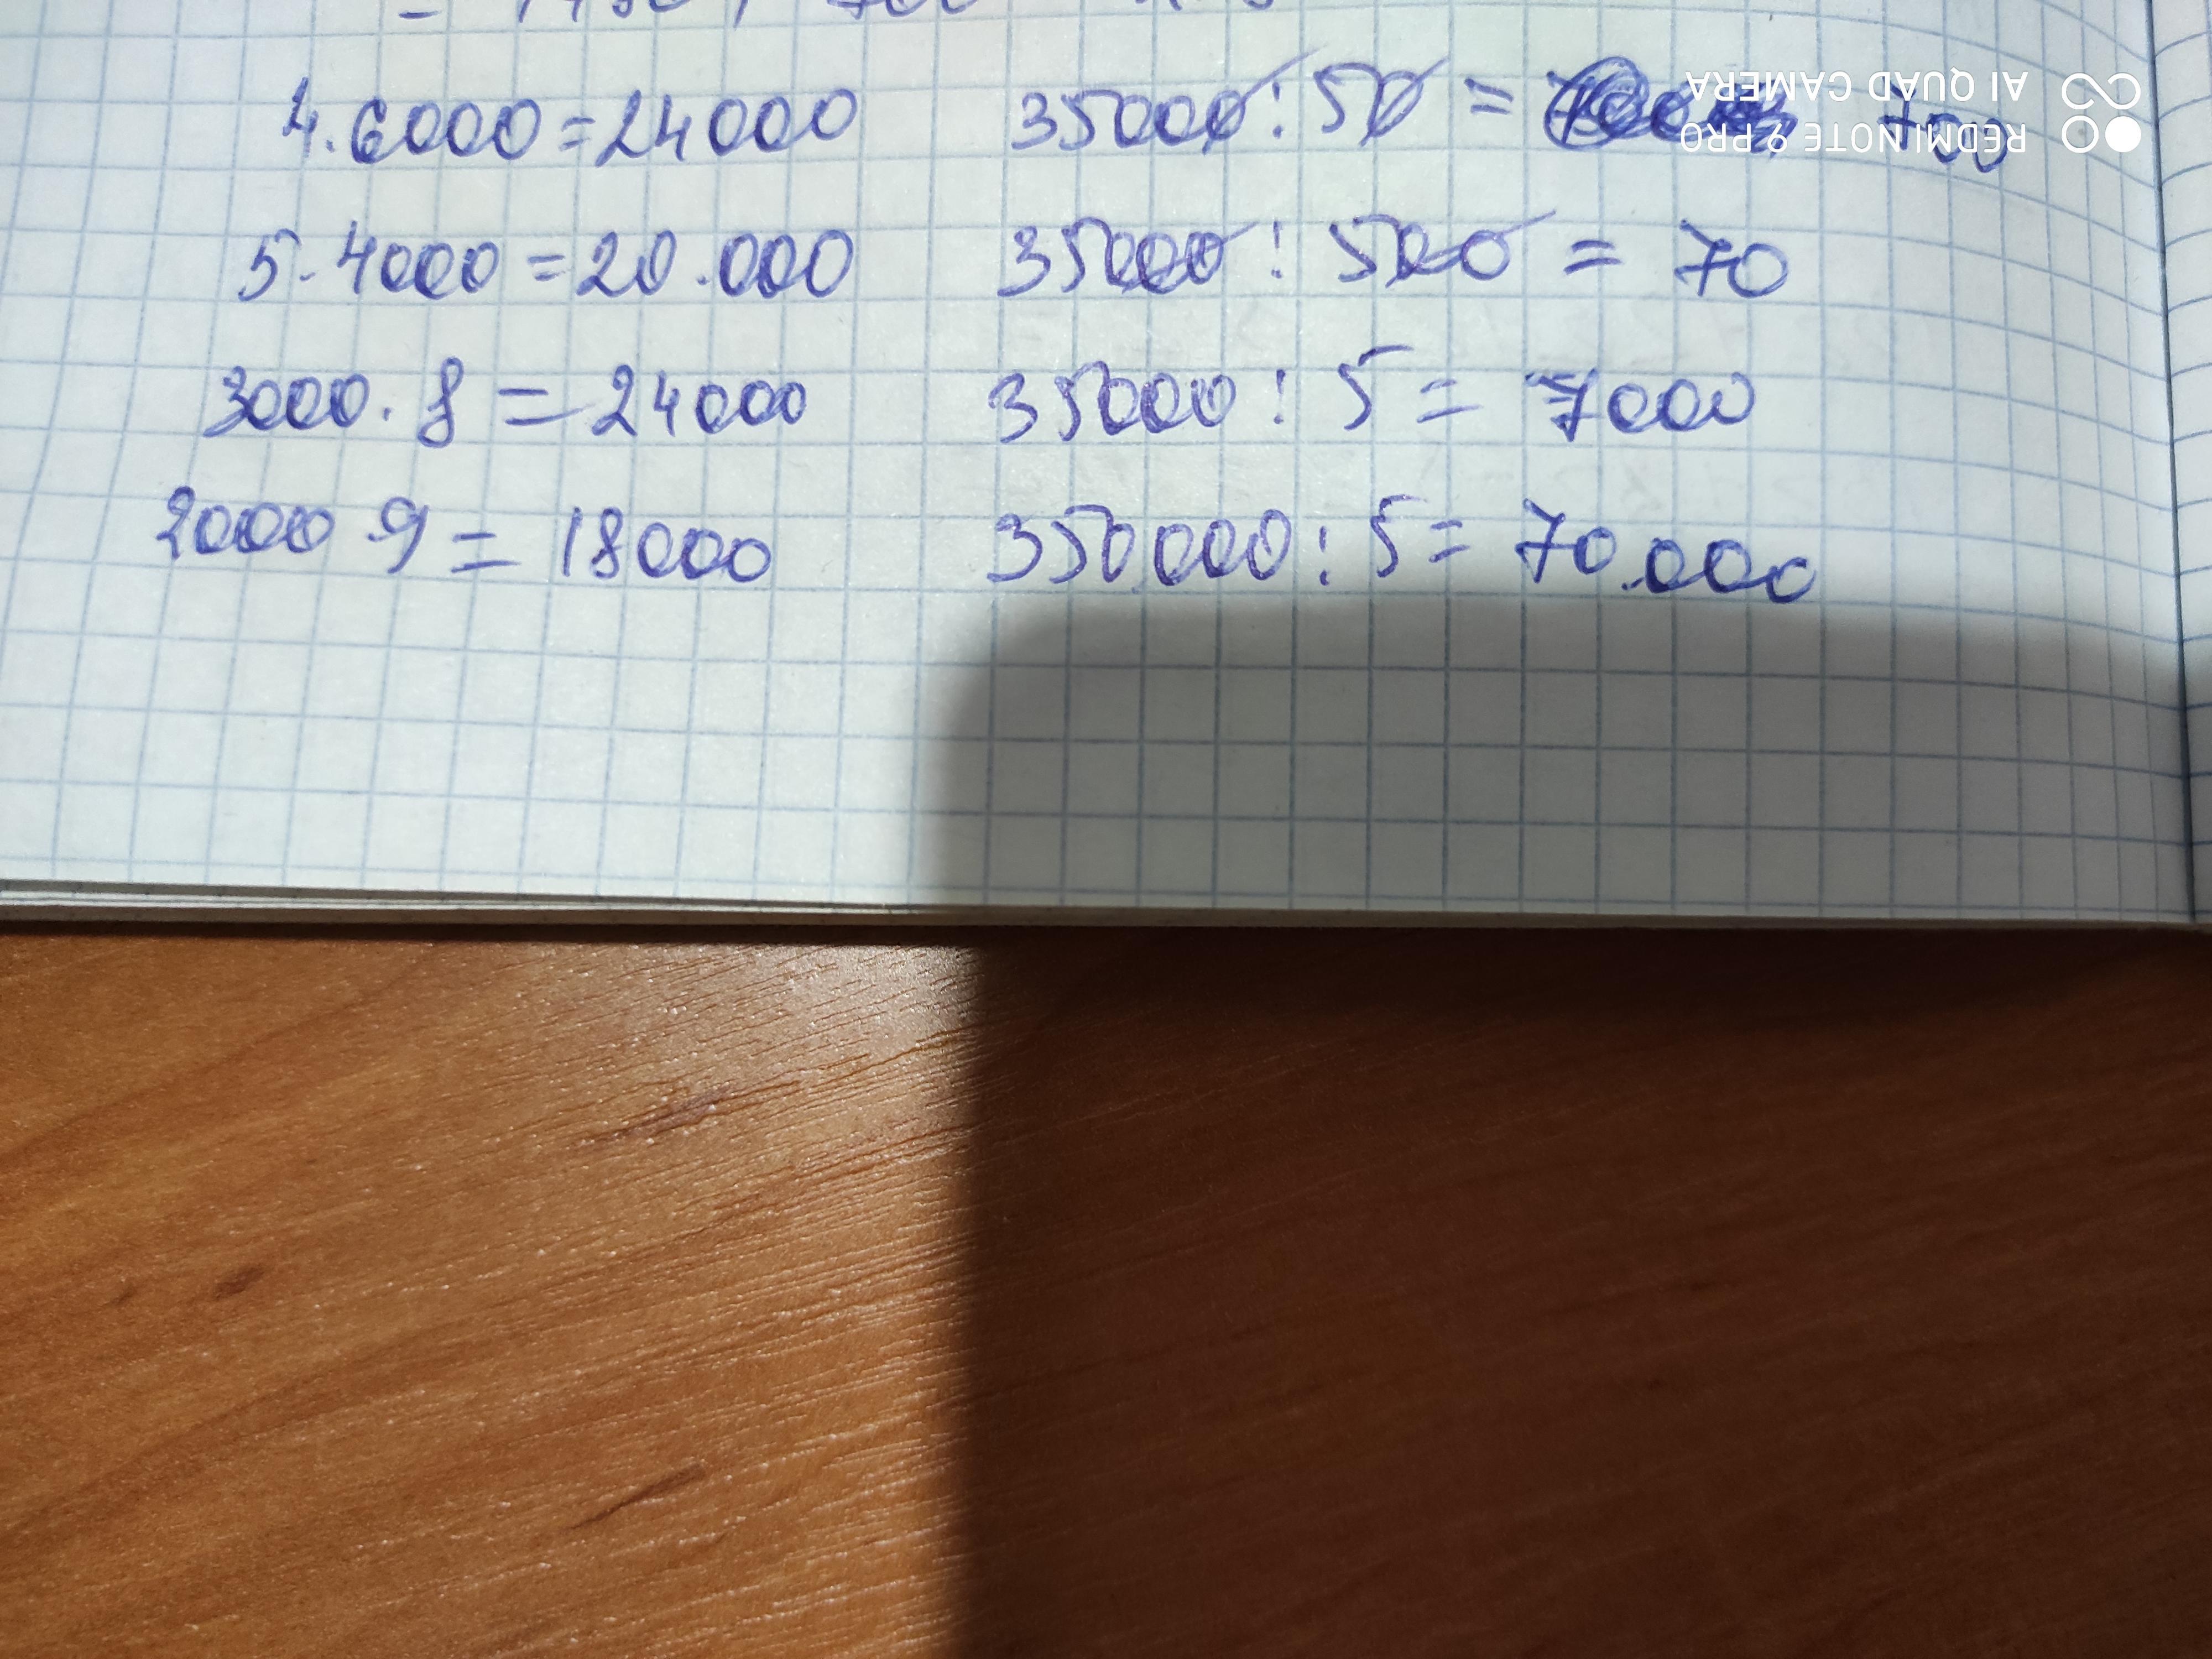 4·6000=24000 35000:50= 700
5·4000=20.000 35000:500=70
3000·8=24000 35000:5=7000
2000·9=18000 350.000:5=70.000
REDMI NOTE 9 PRO
AI QUAD CAMERA